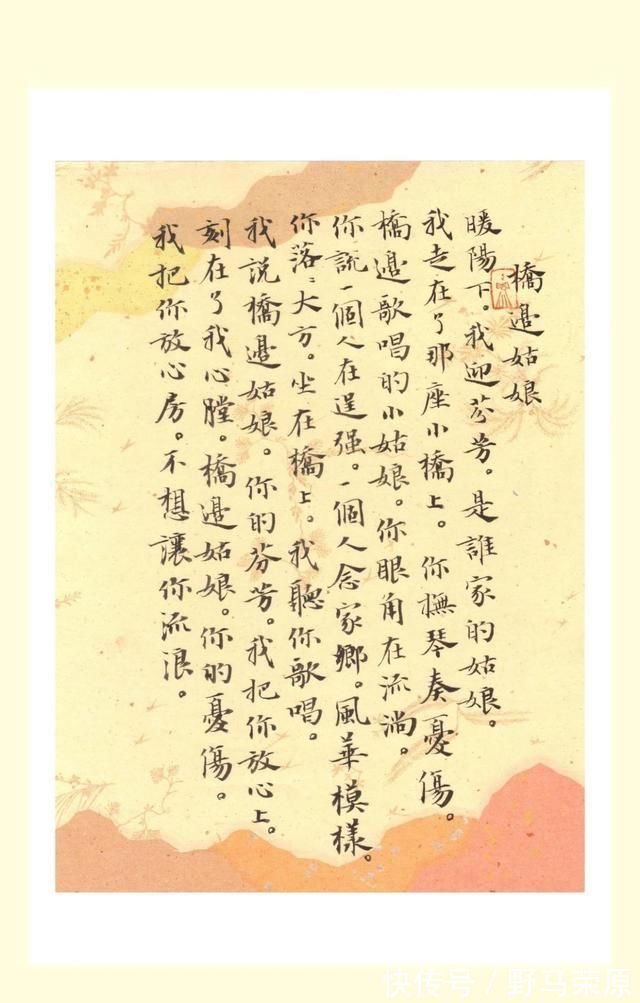 橋邊姑娘
暖陽下。我迎芬芳。是誰家的姑娘。
我走在了那座小橋上。你撫琴奏憂傷。
橋邊歌唱的小姑娘。你眼角在流淌。
你說一個人在逞强。一個人念家鄉。風華模樣。
你落〻大方。坐在橋上。我聽你歌唱。
我说橋邊姑娘。你的芬芳。我把你放心上。
刻在了我心膛。橋邊姑娘。你的憂傷。
我把你放心房。不想讓你流浪。
快传号/野马荣原